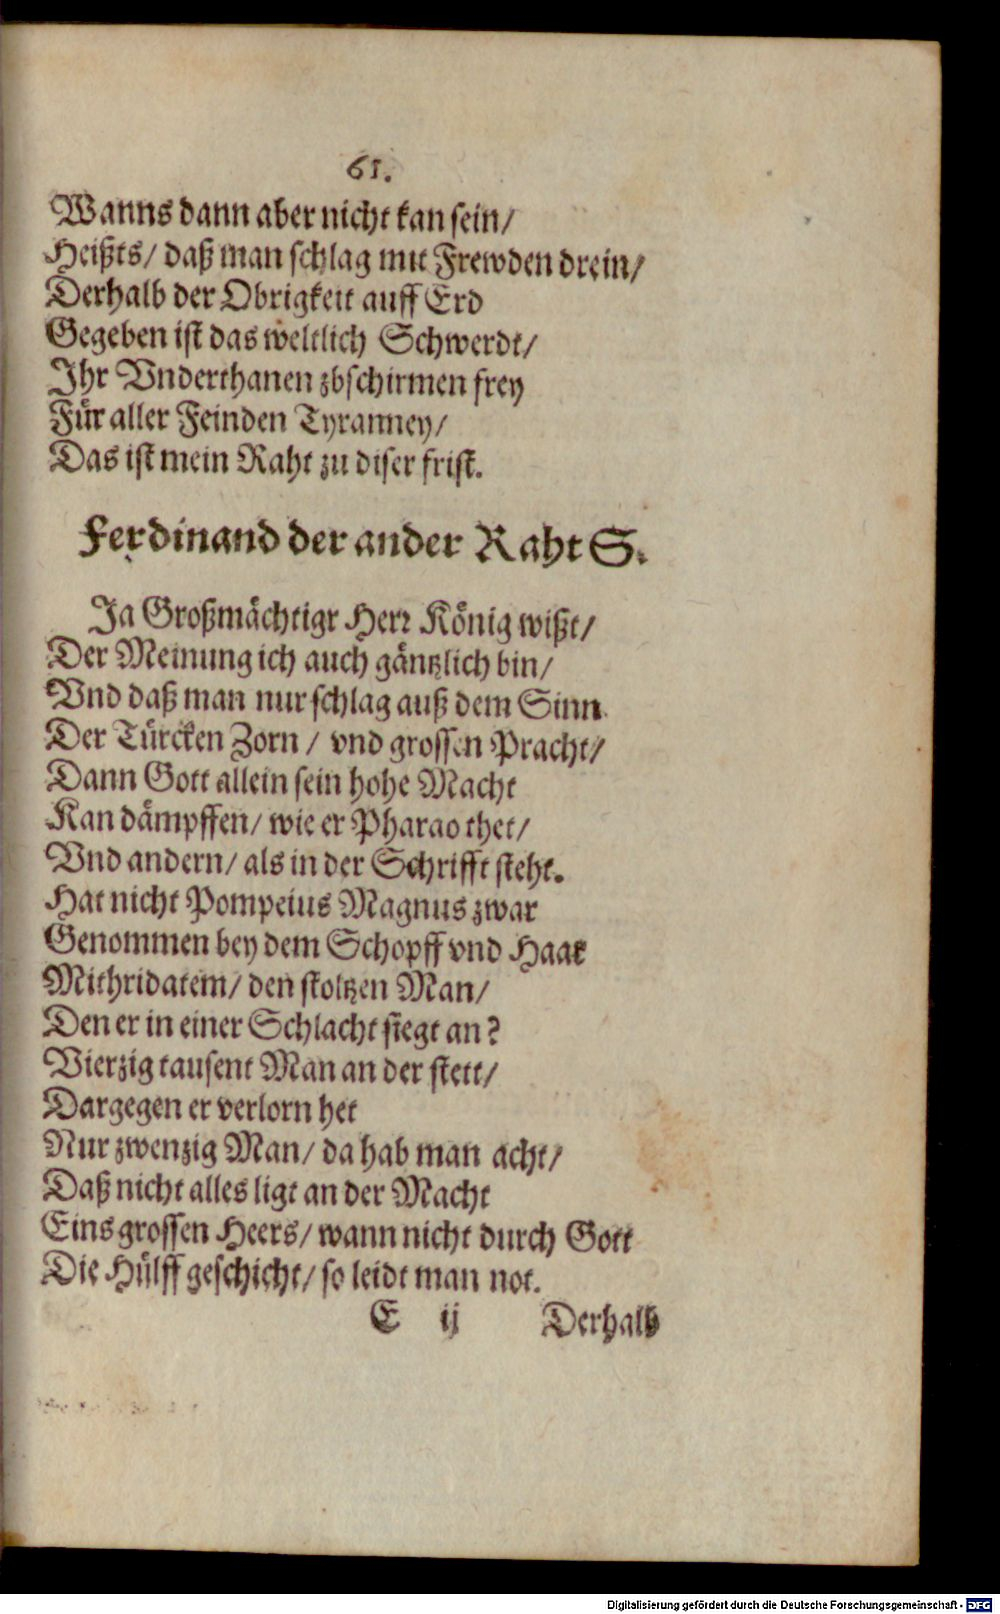 61.
Wanns dann aber nicht kan sein/
Heißts/ daß man schlag mit Frewden drein/
Derhalb der Obrigkeit auff Erd
Gegeben ist das weltlich Schwerdt/
Ihr Vnderthanen zbschirmen frey
Für aller Feinden Tyranney/
Das ist mein Raht zu diser frist.
Ferdinand der ander Raht S.
Ja Großmächtigr Herr König wißt/
Der Meinung ich auch gäntzlich bin/
Vnd daß man nur schlag auß dem Sinn
Der Türcken Zorn / vnd grossen Pracht/
Dann Gott allein sein hohe Macht
Kan dämpffen/ wie er Pharao thet/
Vnd andern/ als in der Schrifft steht.
Hat nicht Pompeius Magnus zwar
Genommen bey dem Schopff vnd Haar
Mithridatem/ den stoltzen Man/
Den er in einer Schlacht siegt an?
Vierzig tausent Man an der stett/
Dargegen er verlorn het
Nur zwenzig Man/ da hab man acht/
Daß nicht alles ligt an der Macht
Eins grossen Heers/ wann nicht durch Gott
Die Hülff geschicht/ so leidt man not.
E ij Derhalb
Digitalisierung gefördert durch die Deutsche Forschungsgemeinschaft - DFG